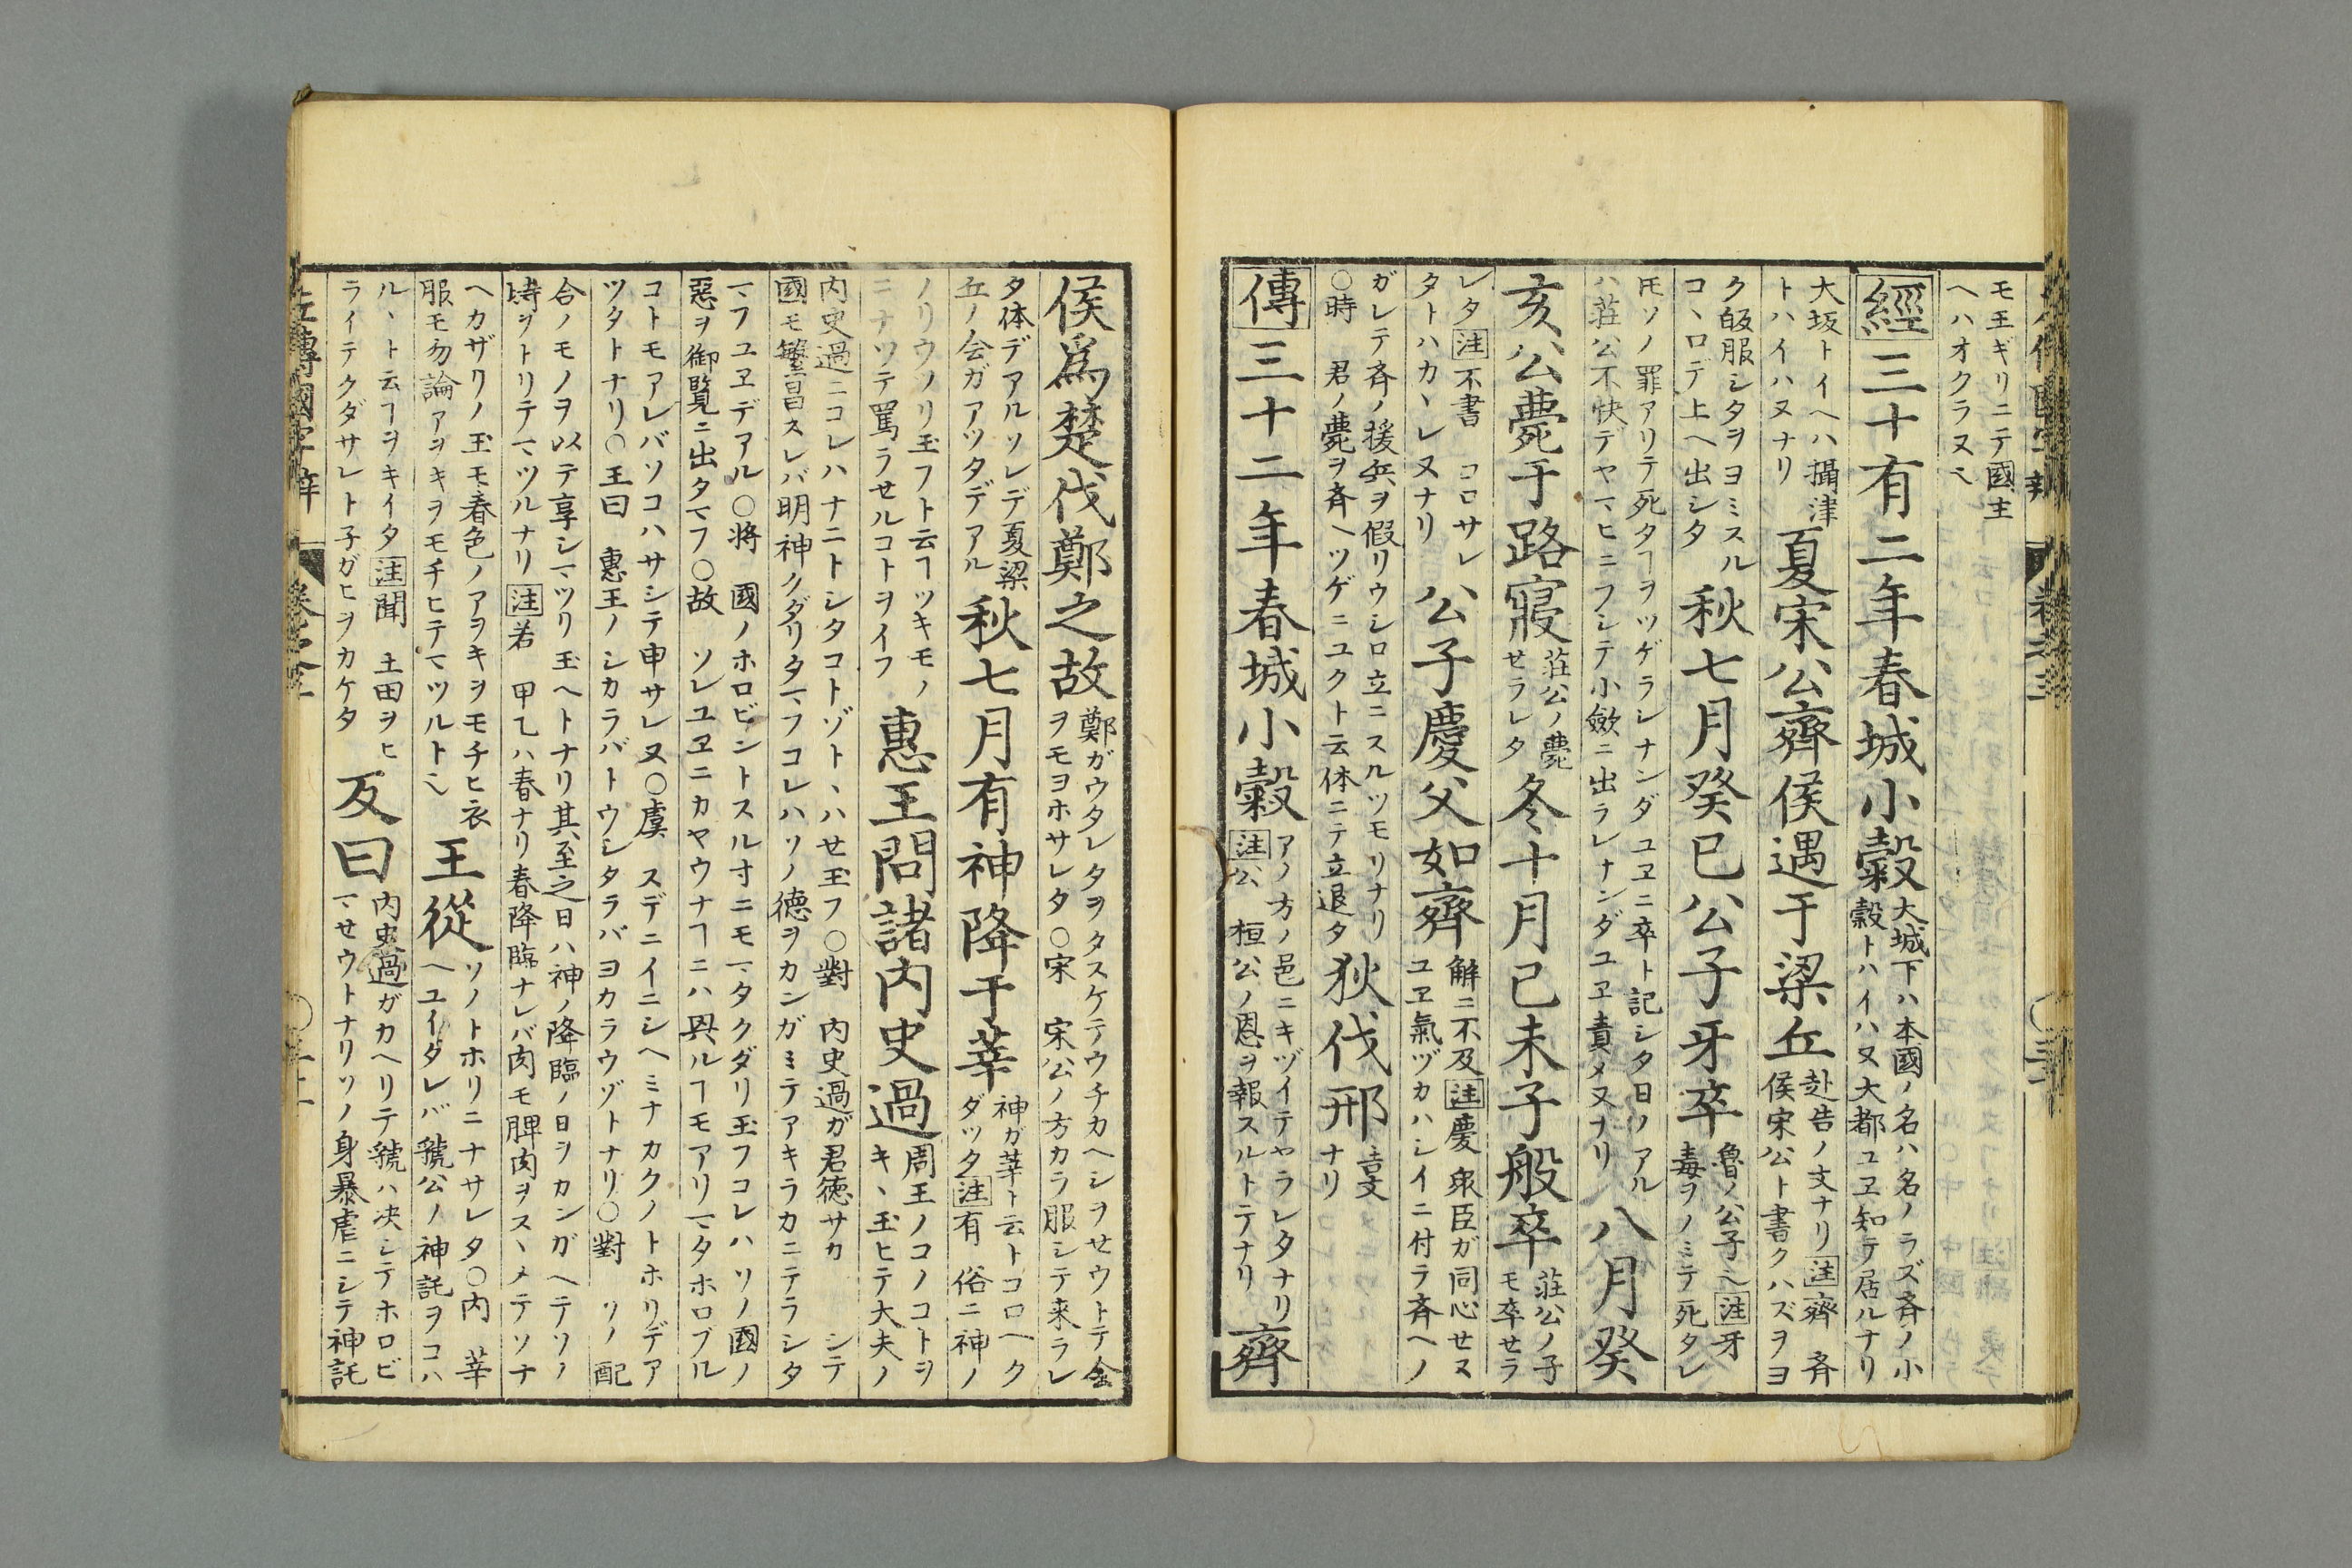 モ王ギリニテ國主
ヘハオクラヌヘ
經三十有二年春城小穀
大城下ハ本國ノ名ハ名ノラズ斉ノ小
穀トハイハヌ大都ユヱ知テ居ルナリ
大坂トイヘハ攝津
トハイハヌナリ
夏宋公齊侯遇于梁丘
赴告ノ文ナリ注齊 斉
侯宋公ト書クハズヲヨ
ク皈服シタヲヨミスル
コヽロデ上ヘ出シタ
秋七月癸巳公子牙卒
魯ノ公子ヘ注牙
毒ヲノミテ死タレ
ソノ罪アリテ死タヿヲツゲラレナンダユヱニ卒ト記シタ日ノアル
ハ莊公不快テヤマヒニフシテ小斂ニ出ラレナンダユヱ責メヌナリ
八月癸
亥公薨于路寢
莊公ノ薨
セラレタ
冬十月已未子般卒
莊公ノ子
モ卒セラ
レタ注不書 コロサレ
タトハカヽレヌナリ
公子慶父如齊
解ニ不及注慶 衆臣ガ同心セヌ
ユヱ氣ヅカハシイニ付ラ斉ヘノ
ガレテ斉ノ援兵ヲ假リウシロ立ニスルツモリナリ
○時 君ノ薨ヲ斉ヘツゲニユクト云体ニテ立退タ
狄伐邢
ナリ
傳三十二年春城小穀
アノ方ノ邑ニキヅイテヤラレタナリ
注公 桓公ノ恩ヲ報スルトテナリ
齊
侯爲楚伐鄭之故
鄭ガウタレタヲタスケテウチカヘシヲセウトテ会
ヲモヨホサレタ○宋 宋公ノ方カラ服シテ来ラレ
タ体デアルソレデ夏梁
丘ノ会ガアツタデアル
秋七月有神降于莘
神ガ莘ト云トコロヘク
ダツタ注有 俗ニ神ノ
ノリウツリ玉フト云ヿツキモノ
ニナツテ罵ラセルコトヲイフ
惠王問諸内史過
周王ノコノコトヲ
キヽ玉ヒテ大夫ノ
内史過ニコレハナニトシタコトゾトヽハセ玉フ○對 内史過ガ君徳サカ シテ
國モ繁昌スレバ明神クダリタマフコレハソノ德ヲカンガミテアキラカニテラシタ
マフユヱデアル○將 國ノホロビントスル寸ニモマタクダリ玉フコレハソノ國ノ
惡ヲ御覧ニ出タマフ○故 ソレユヱニカヤウナヿニハ興ルヿモアリマタホロブル
コトモアレバソコハサシテ申サレヌ○虞 スデニイニシヘミナカクノトホリデア
ツタトナリ○王曰 惠王ノシカラバトウシタラバヨカラウゾトナリ○對 ソノ配
合ノモノヲ以テ享シマツリ玉ヘトナリ其至之日ハ神ノ降臨ノ日ヲカンガヘテソノ
時ヲトリテマツルナリ注若 甲乙ハ春ナリ春降臨ナレバ肉モ脾肉ヲスヽメテソナ
ヘカザリノ玉モ春色ノアヲキヲモチヒ衣
服モ勿論アヲキヲモチヒテマツルトヘ
王從
ソノトホリニナサレタ○内 莘
ヘユイダレバ虢公ノ神託ヲコハ
ルヽト云ヿヲキイタ注聞 土田ヲヒ
ライテクダサレト子ガヒヲカケタ
反曰
内史過ガカヘリテ虢ハ决シテホロビ
マセウトナリソノ身暴虐ニシテ神託